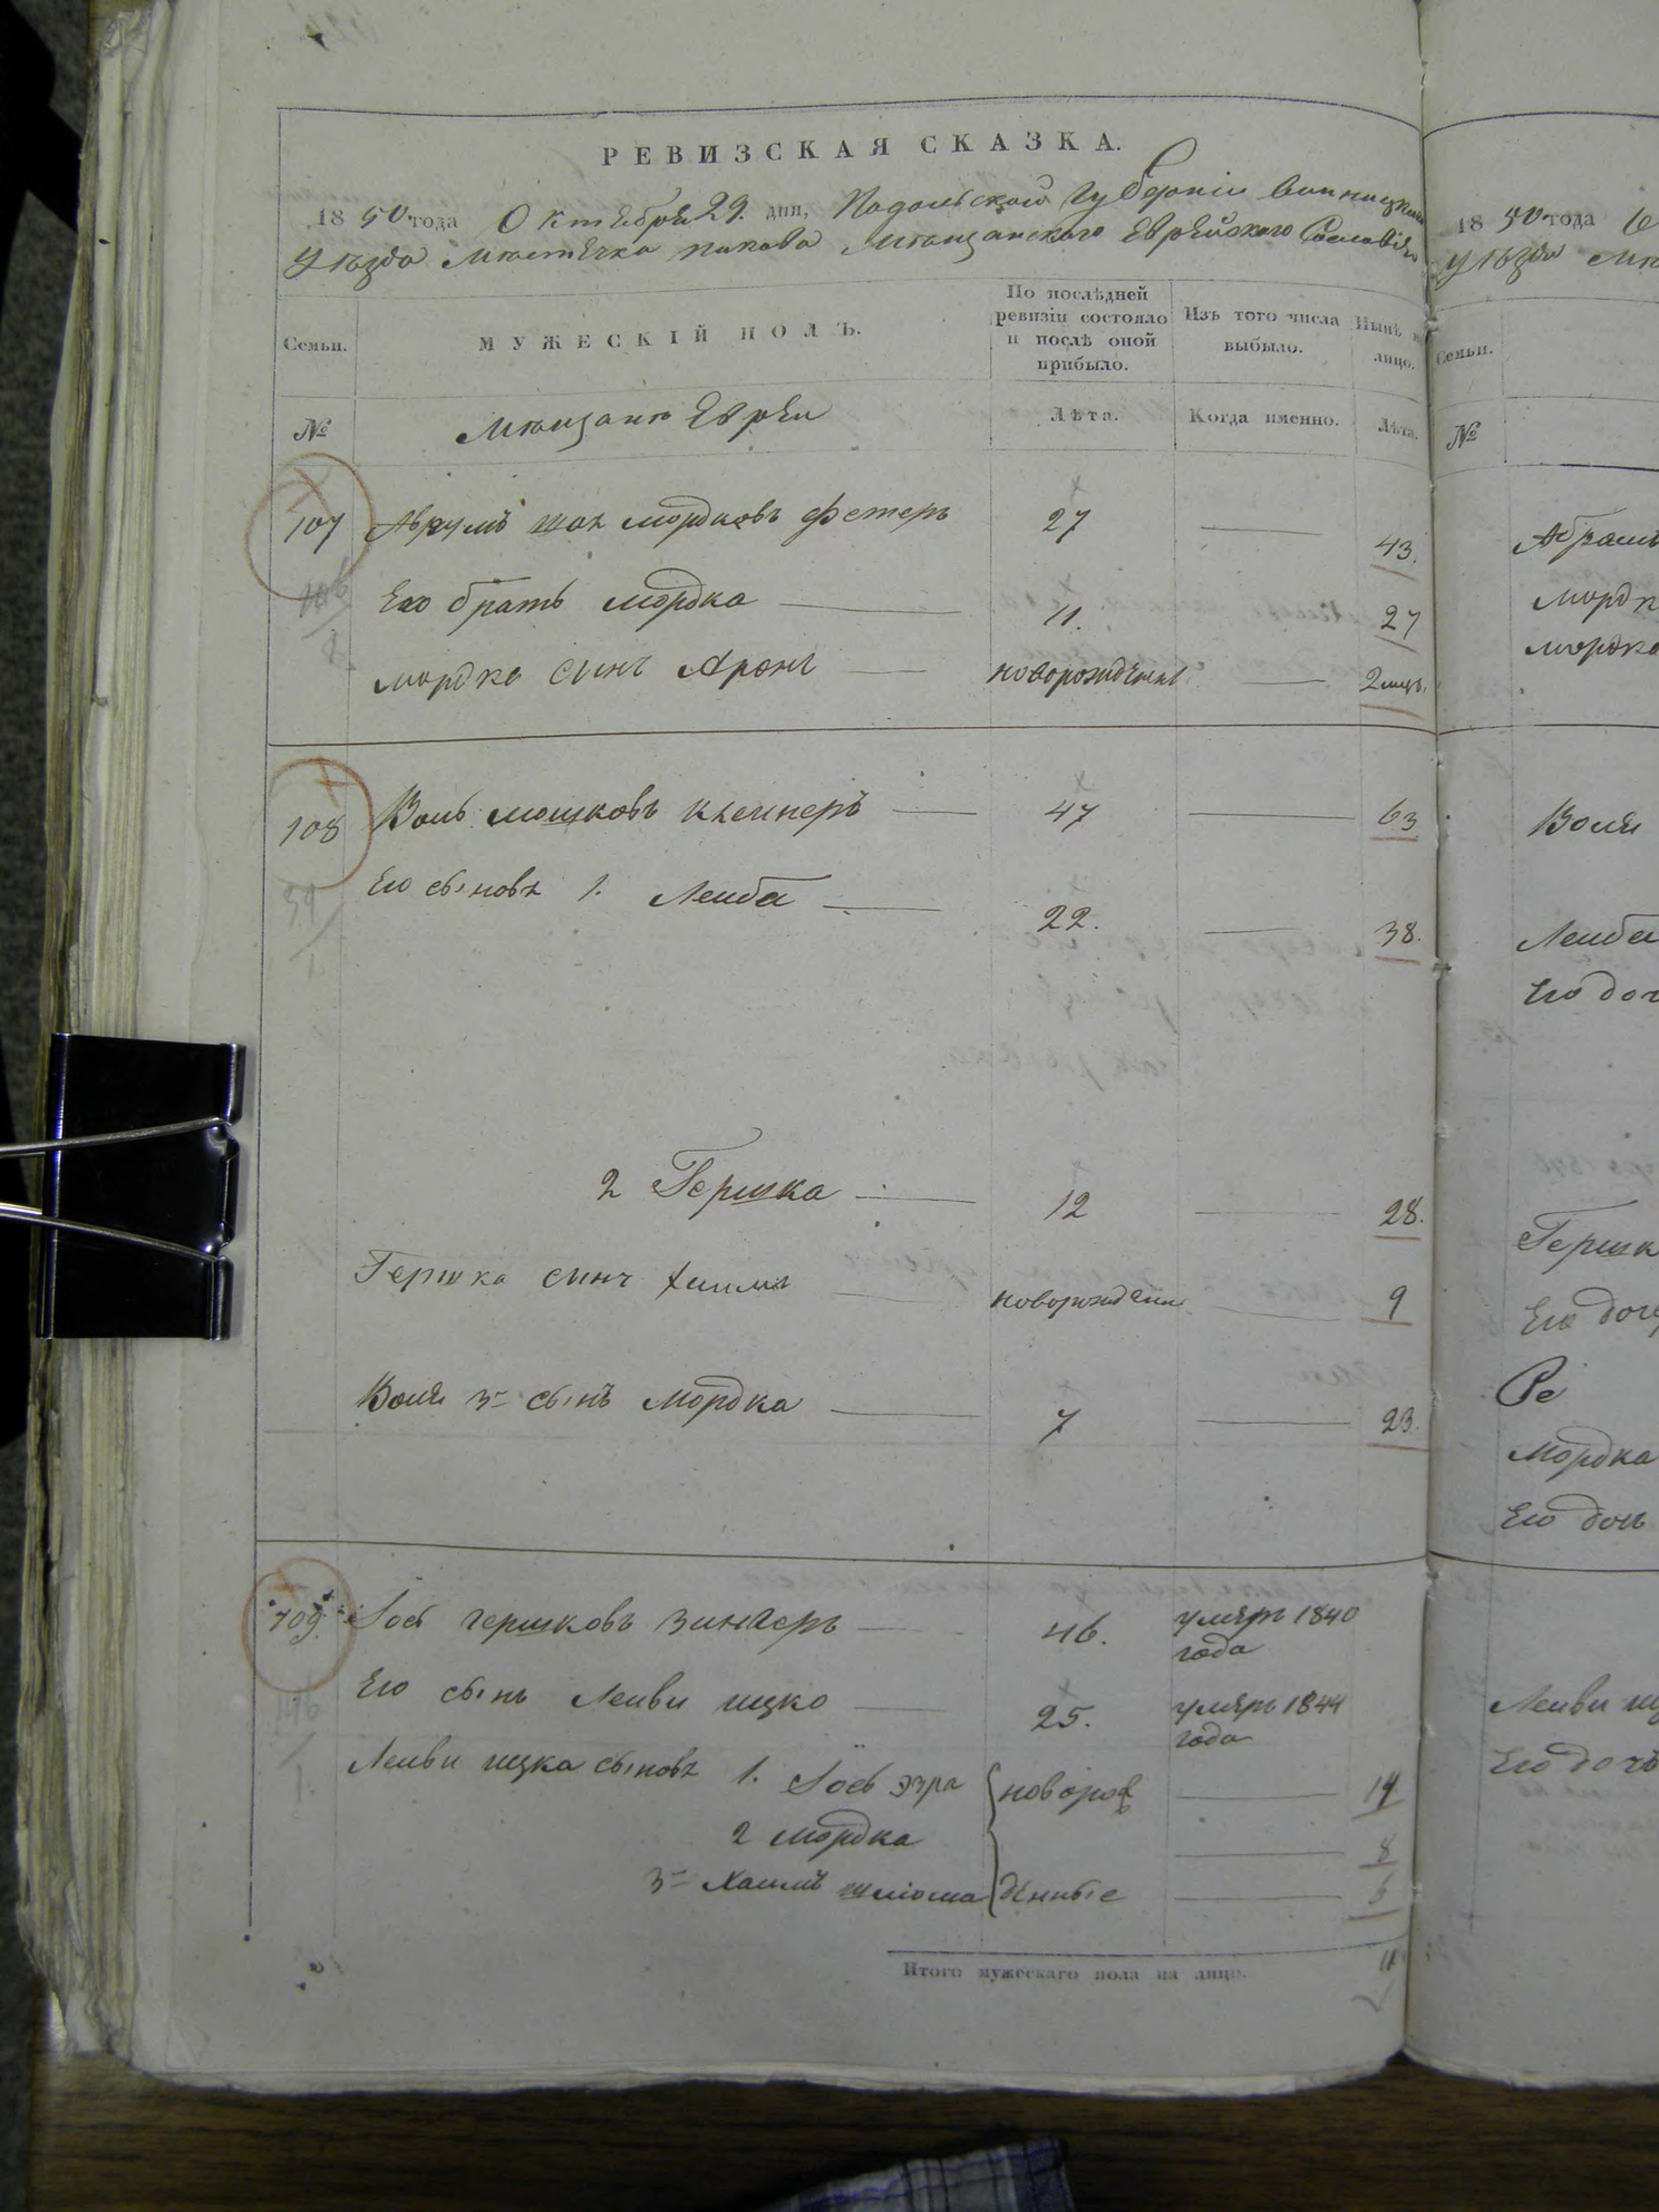 РЕВИЗСКАЯ СКАЗКА.
1850 года Октября 29. дня, Подольской Губернии Винницкаго
Уѣзда Мѣстечка Пикова Мѣщанского Еврейского Сословія
Семьи.
МУЖЕСКІЙ ПОЛЪ.
По послѣдней ревизіи состояло и послѣ оной прибыло.
Изъ того числа выбыло.
Нынѣ
лицо.
№
Мѣщанѣ Евреи
Лѣта.
Когда именно.
Лѣта.
107 Аврумъ Мордковъ Фетеръ 27 43.
Его братъ Мордка 11. 27
Мордка синъ Аронъ новорожденъ 2 мѣц.
108 Воль Мошковъ Клейнеръ 47 63
Его сыновя 1. Лейба 22. 38.
2 Гершка 12 28.
Гершка синъ новорожден 9
Воля 3 сынъ Мордка 7 23.
109. Іось Гершковъ Зингеръ 46. умеръ 1840 года
Его сынъ Лейви Ицко 25. умеръ 1844 года
Лейви Ицка сыновя 1. Іось Эзра новорож 14
2 Мордка 8
3 Хаимъ Шліома денные
Итого мужескаго пола на лицо.
1850 года
Уѣзда
Семьи.
№
Абрам
Мордк
Мордка
Воля
Лейба
Его доч
Гершк
Его доч
Ре
Мордка
Его доч
Лейви
Его доч